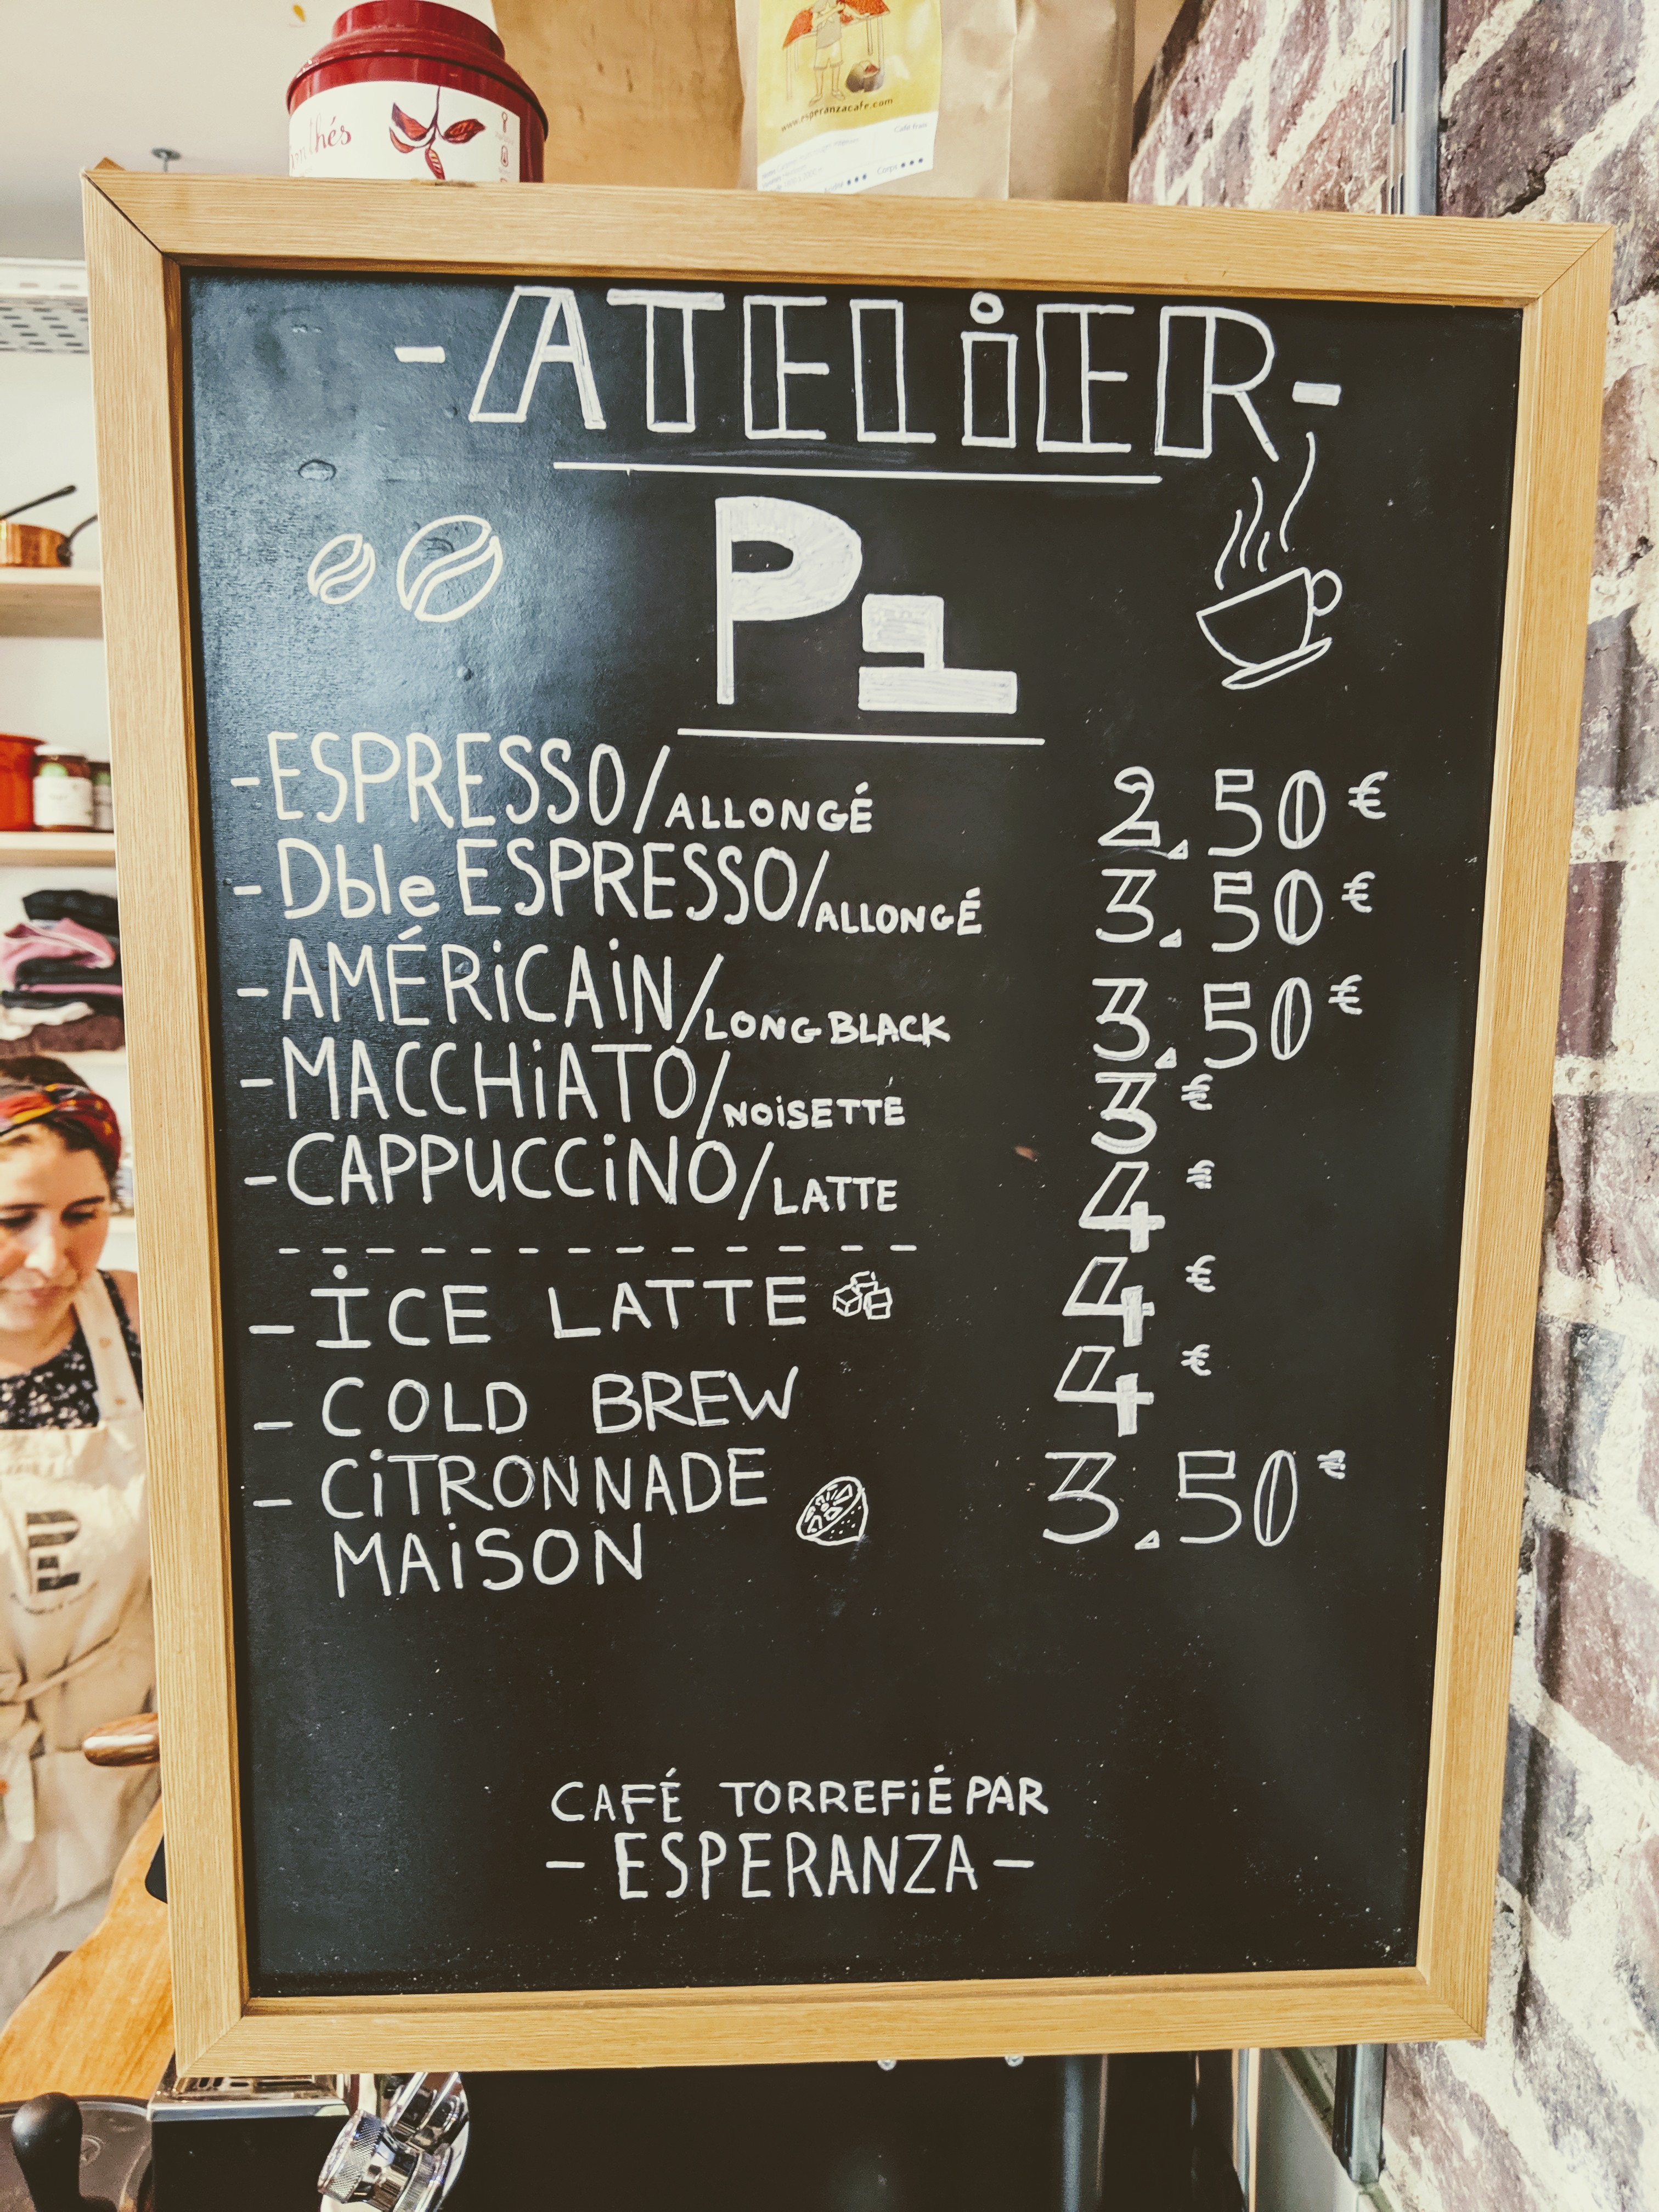 www.esperanzacafe.com
Café frais
Corps
- ATELIER -
P1
- ESPRESSO/ALLONGÉ 2.50€
- Dble ESPRESSO/ALLONGÉ 3.50€
- AMÉRICAIN/LONG BLACK 3.50€
- MACCHIATO/NOISETTE 3€
- CAPPUCCINO/LATTE 4€
- ICE LATTE 4€
- COLD BREW 4€
- CITRONNADE 3.50€
MAISON
CAFÉ TORREFIÉ PAR
- ESPERANZA -